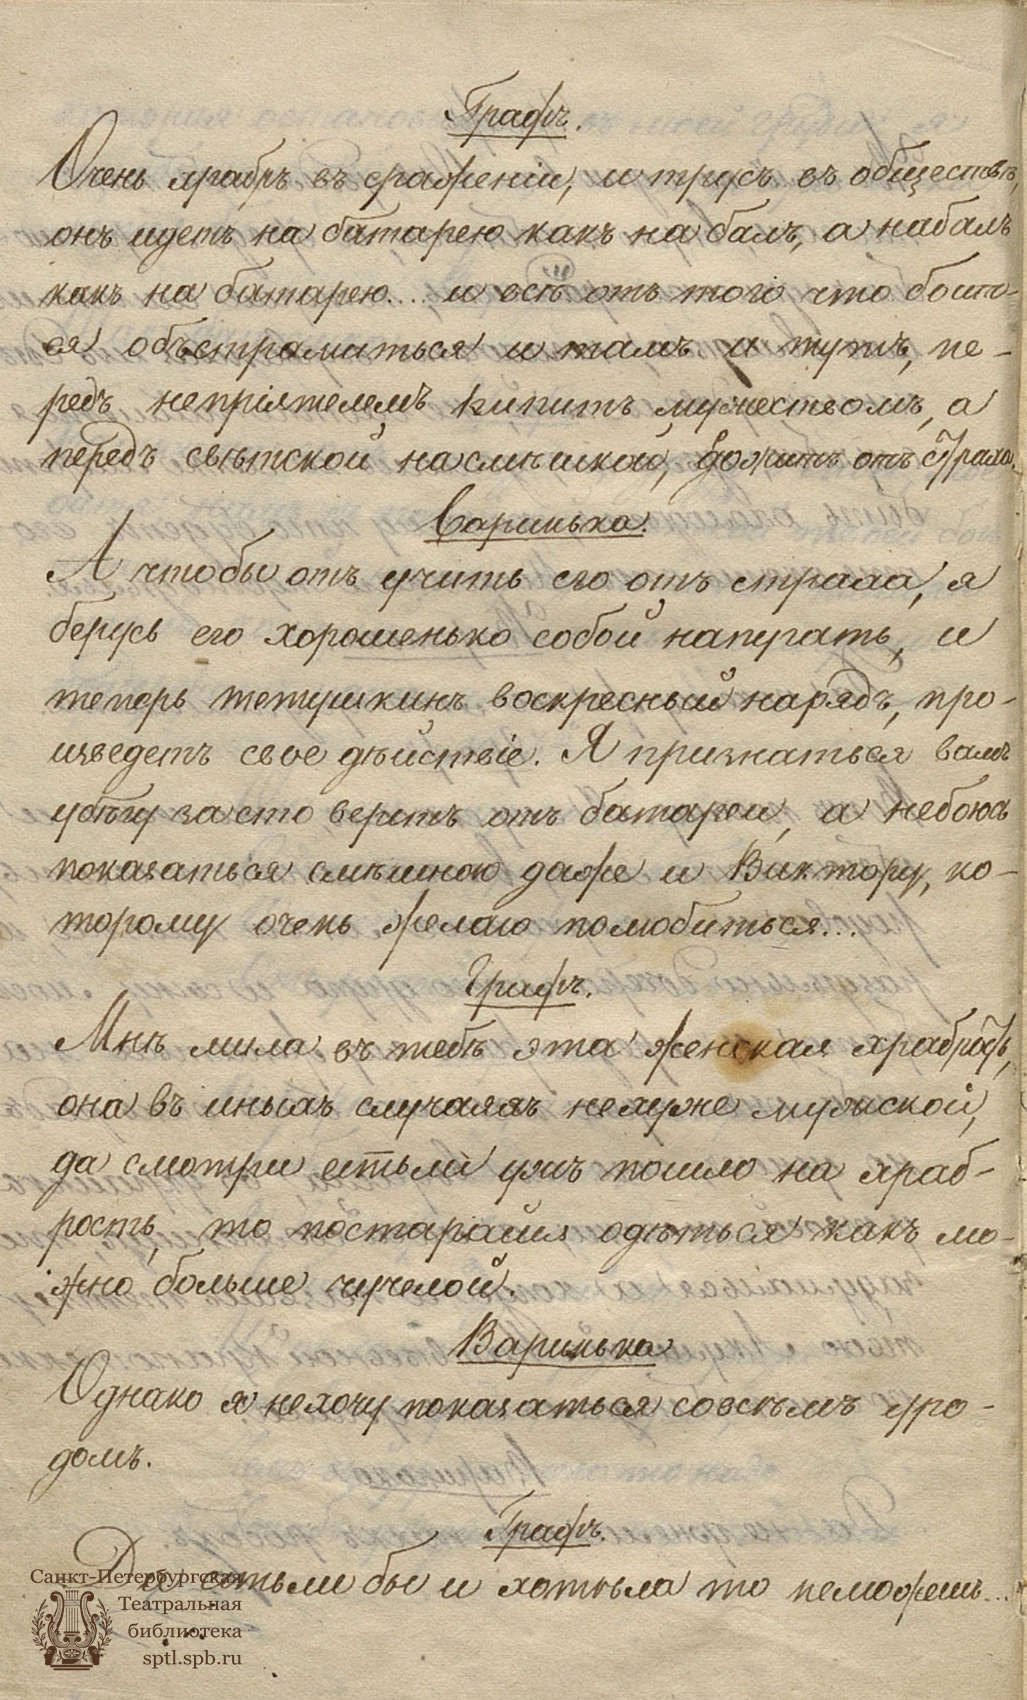 Графъ.
Очень храбръ въ сраженіи, и трусъ въ обществѣ,
онъ идетъ на батарею какъ на балъ, а набалъ
какъ на батарею.... и всё отъ того что боит-
ся объстрамиться и тамъ и тутъ, пе-
редъ непріятелемъ кипитъ мужествомъ, а
передъ свѣтской насмѣшкой, дрожитъ отъ страха.
Варинька.
А чтобы отъ учить его отъ страха, я
берусь его хорошенько собой напугать, и
теперь тетушкинъ воскресный нарядъ, про-
изведетъ свое дѣйствіе. Я признаться вамъ
убѣгу за сто верстъ отъ батареи, а небоюсь
показаться смѣшною даже и Виктору, ко-
торому очень желаю полюбиться...
Графъ.
Мнѣ мила въ тебѣ эта женская храбрость,
она въ иныхъ случаяхъ нехуже мужской,
да смотри естьли ужъ пошло на храб-
рость, то постарайся одѣться какъ мо-
жно больше чучелой.
Варинька
Однако я нехочу показаться совсѣмъ уро-
домъ.
Графъ.
Да естьли бы и хотѣла то неможешь...
Санкт-Петербургская
Театральная
библиотека
sptl.spb.ru